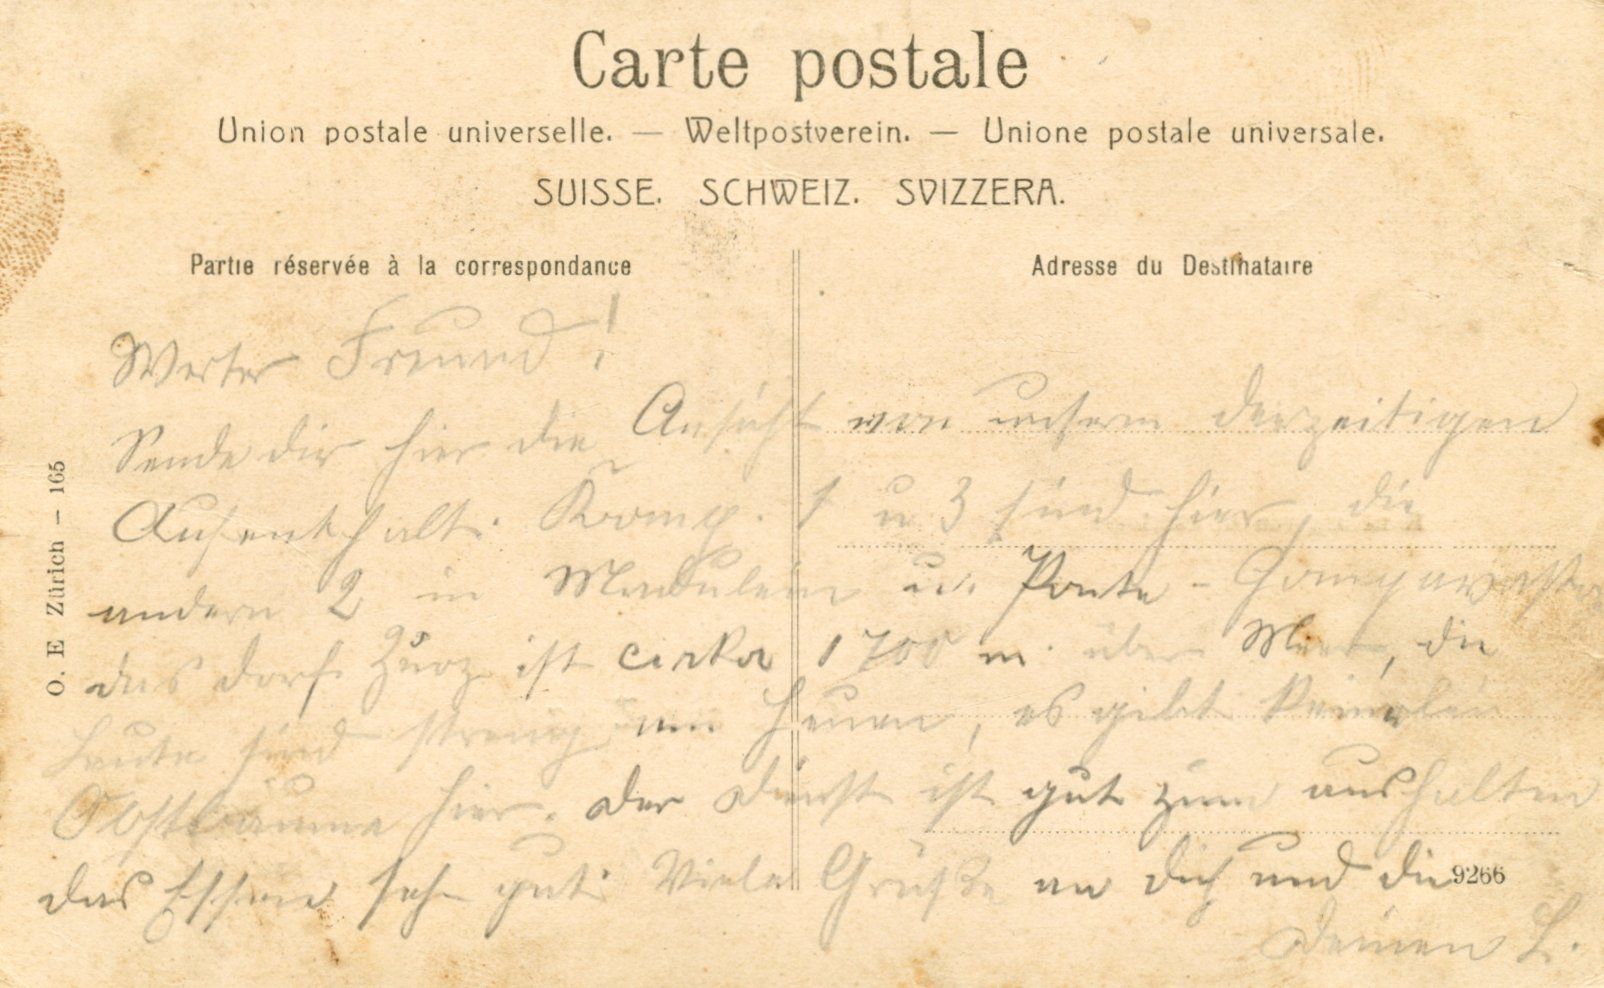 Carte postale
Union postale universelle. — Weltpostverein. — Unione postale universale.
SUISSE. SCHWEIZ. SVIZZERA.
Partie réservée à la correspondance
Adresse du Destinataire
O. E Zürich – 165
Werter Freund!
Sende dir hier die Ansicht von unserm derzeitigen
Aufenthalt. Komp. 1 u 3 sind hier, die
andern 2 in Madulein u. Ponte -
das dorf Zuoz ist cirka 1700 m. über Meer, die
Leute sind streng am Heuen, es gibt keinerlei
Obstbäume hier. der dienst ist gut zum aushalten
das Essen sehr gut. Viele Grüße an dich und die
deinen L.
9266